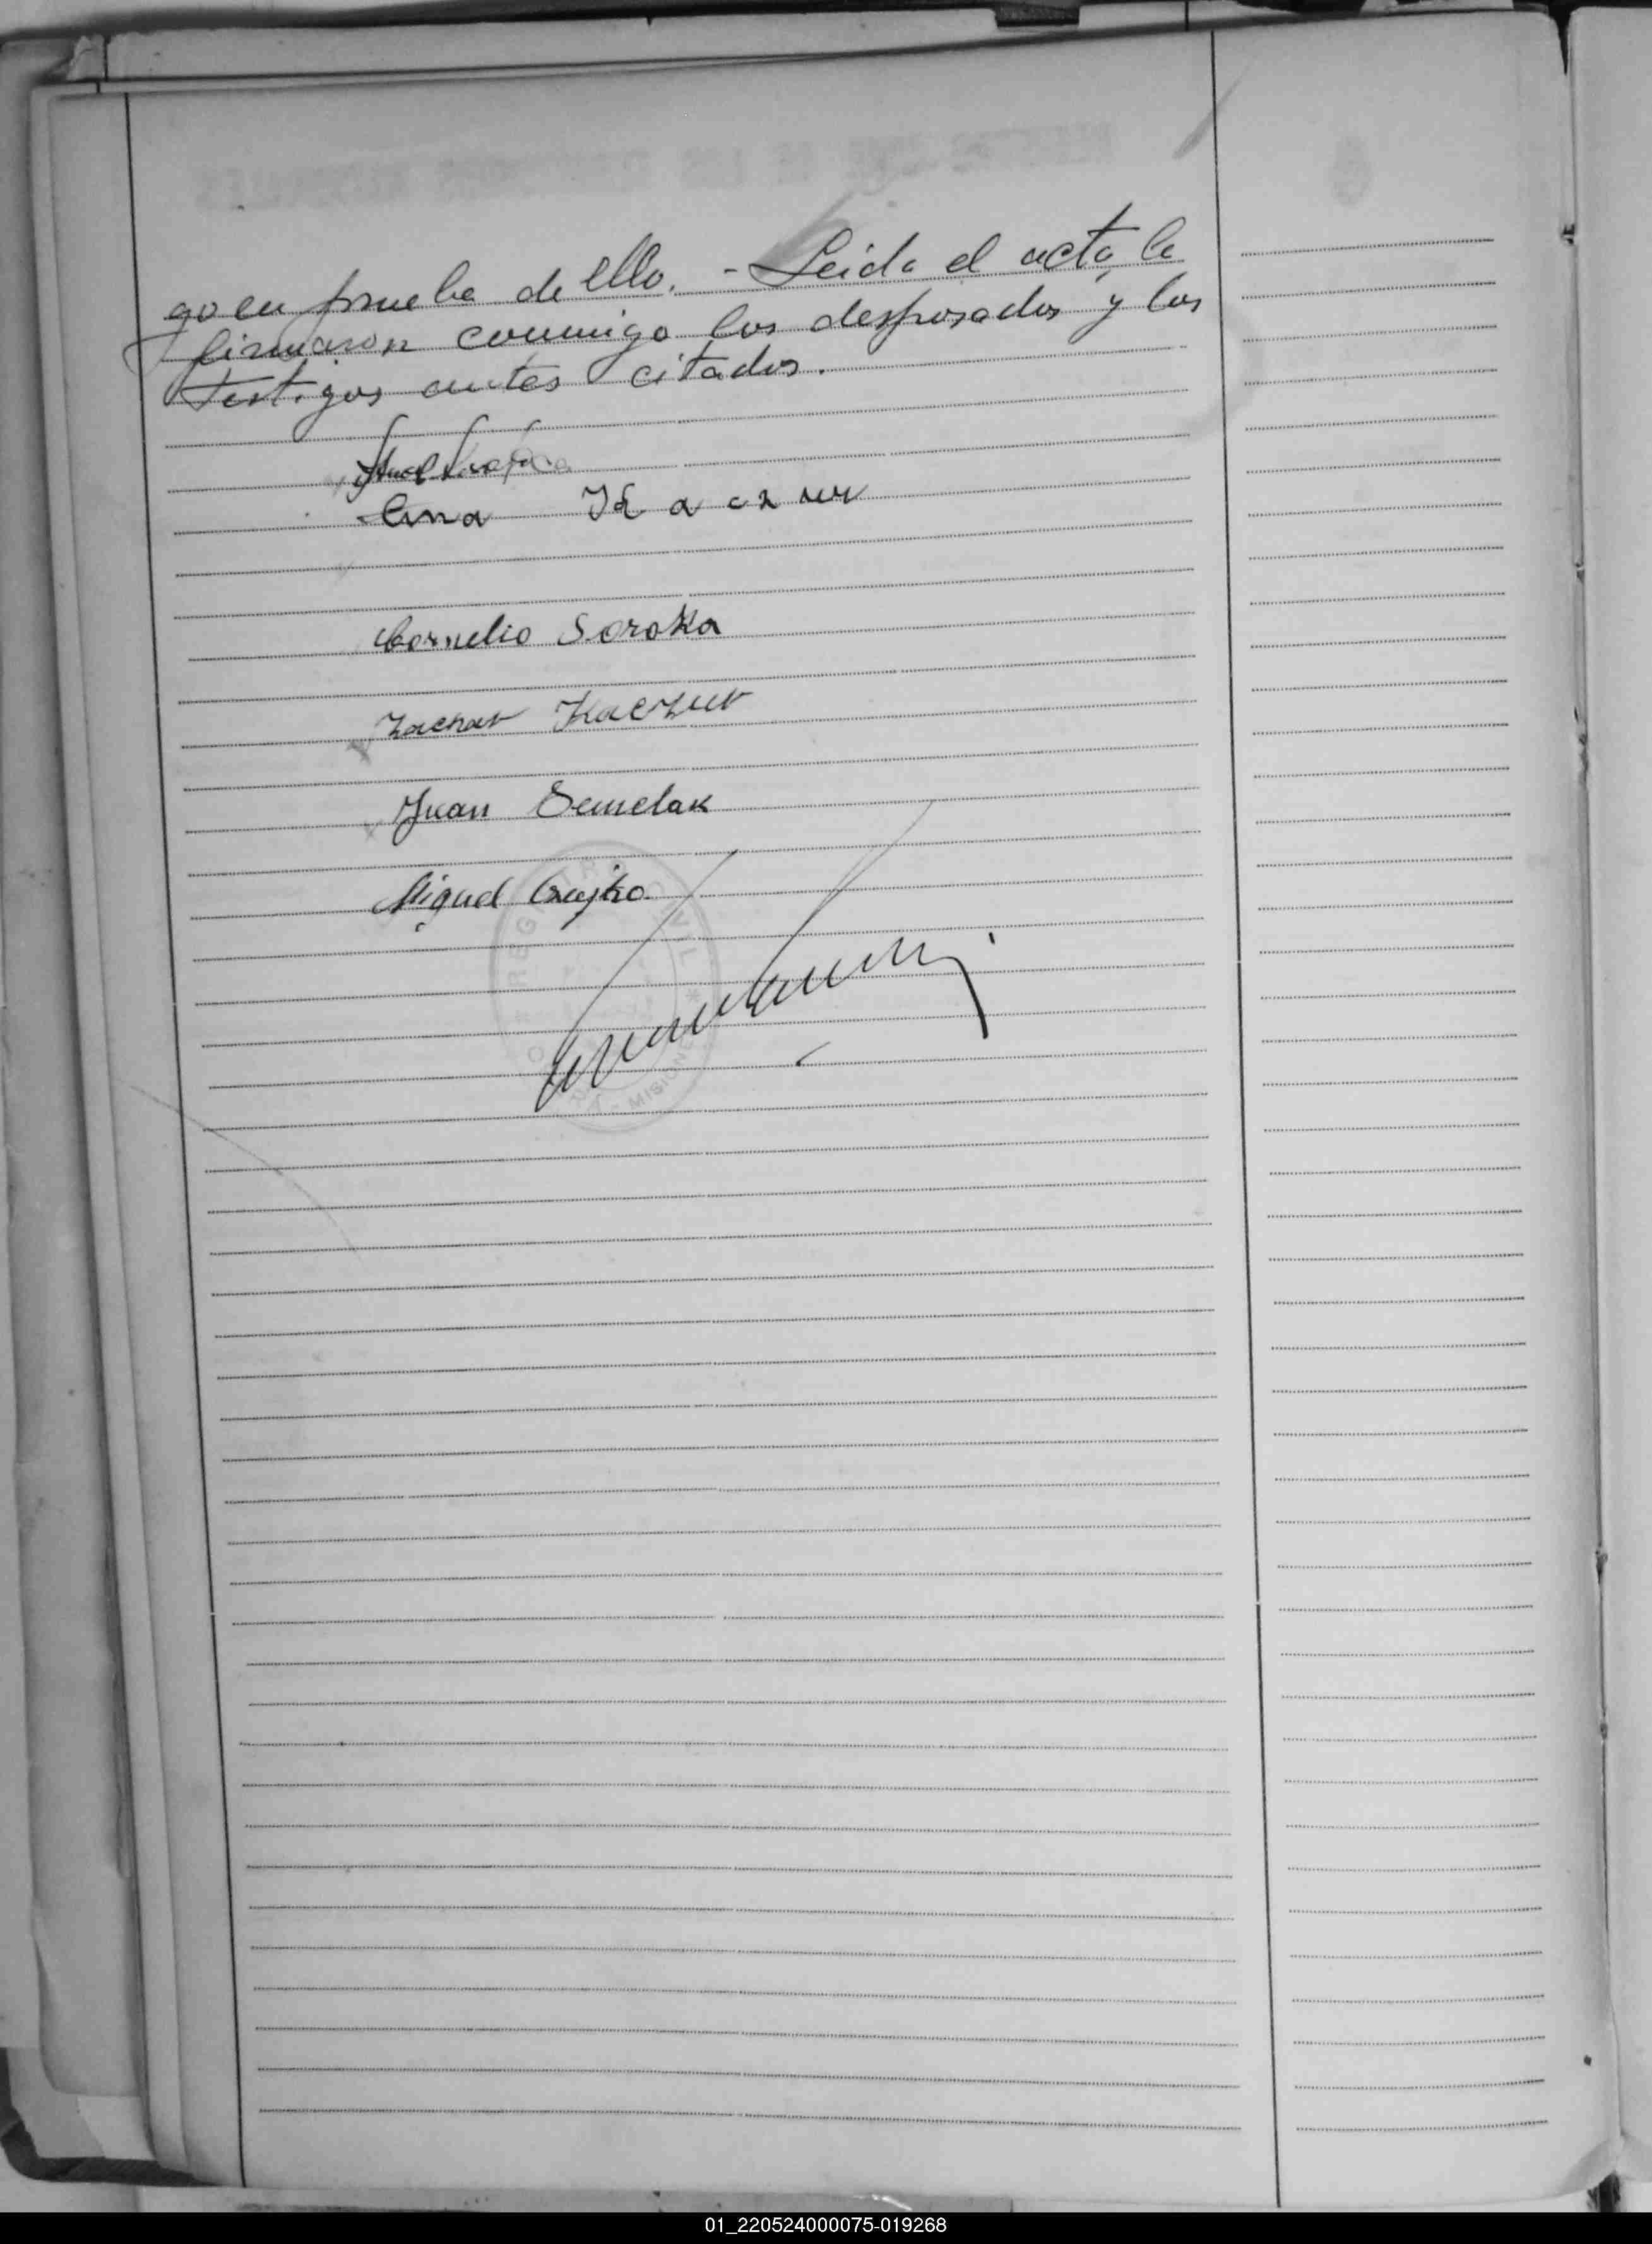 go en prueba de ello. - Leida el acta, la
firmaron conmigo los desposados y los
testigos antes citados.
Ana Kaczur
Cornelio Soroka
Zachar Kaczur
Juan Semelak
Miguel
REGISTRO CIVIL * MISIONES
01_220524000075-019268